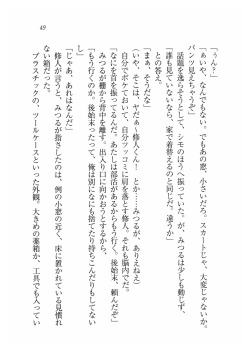 49
「うん？」
「あいや、なんでもない。でもあの窓、小さいだろ。スカートじゃ、大変じゃないか。
パンツ見えちゃうぞ」
話題を逸らそうとして、シモのほうへ振っていた。が、みつるは少しも動じず、
「誰も見ていないなら、家で着替えるのと同じだ。違うか」
との答え。
「まぁ、そうだな」
「いや、そこは、ヤだぁ〜修人くん！　とか……みつるが、ありえねえ」
自分でボケておいて、自分でツッコミに目を落とす修人。それも脳内でだ。
なにを首を振ってるんだ。あたしは部活があるからもう行くぞ」
みつるが棚から背中を離す。出入り口に向かおうとすると、
「もう行くのか。後始末たって、俺は別になにも捨てたり持ちこんだりもしてない
「じゃあ、あれはなんだ」
修人が言うと、みつるが指さしたのは、例の小窓の近く、床に置かれている見慣れ
ない箱だった。
プラスチックの、ツールケースといった外観。大きめの薬箱か、工具でも入ってい